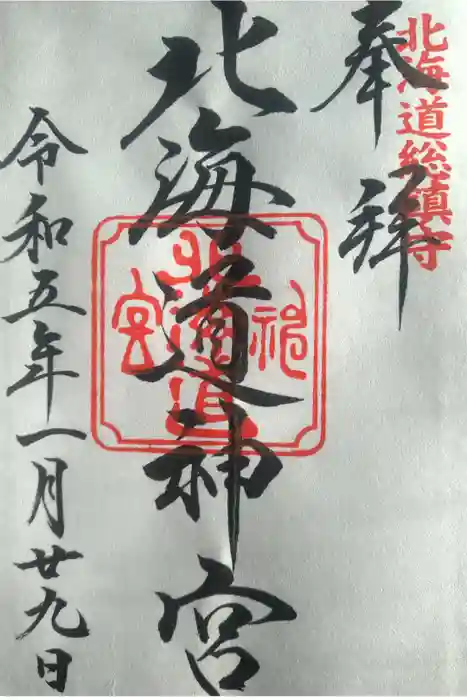 奉拝
北海道総鎮守
北海道神宮
令和五年一月廿九日